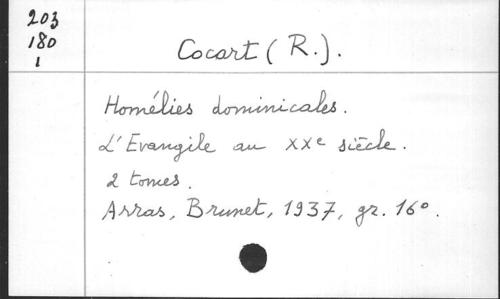 203
180
1
Cocart (R.).
Homélies dominicales.
L'Evangile au XXe siècle.
2 tomes.
Arras, Brunet, 1937, gr. 16°.